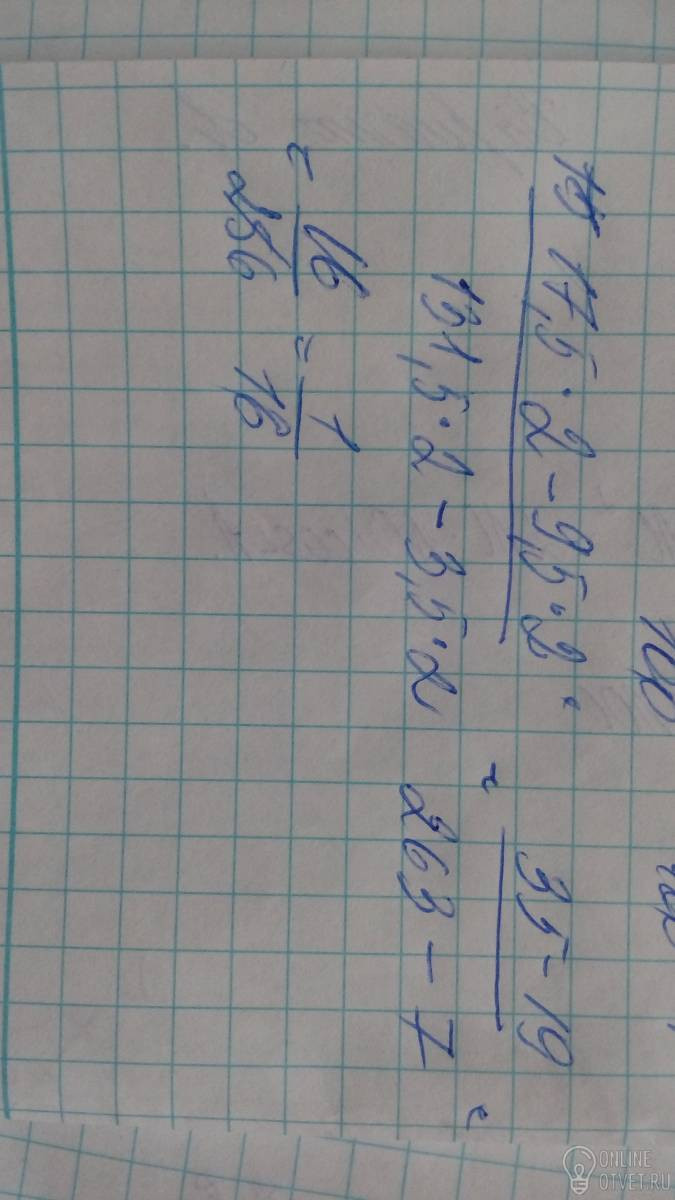 17,5 · 2 - 9,5 · 2 =
131,5 · 2 - 3,5 · 2
= 35 - 19 =
263 - 7
= 16 = 1
256 16
ONLINE
OTVET.RU